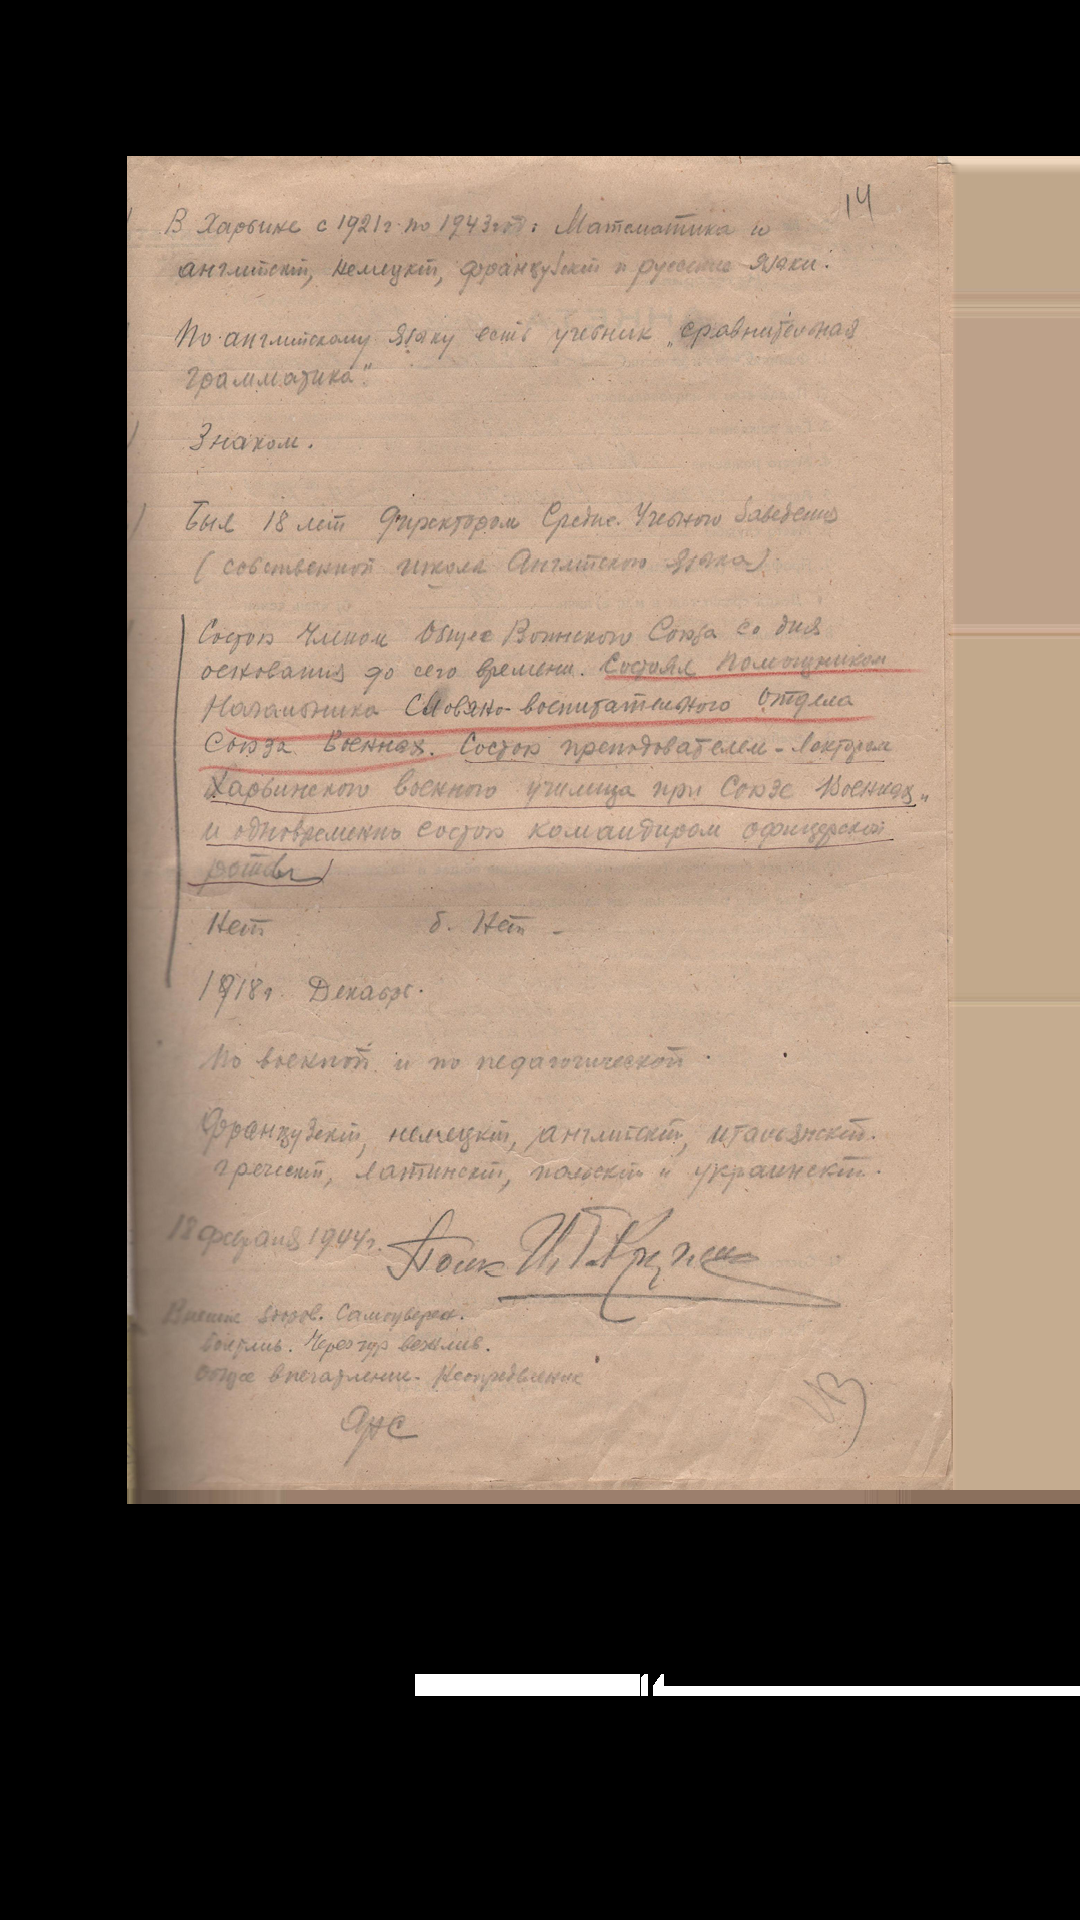 14
В Харбине с 1921г. по 1943 год: Математика и
английский, немецкий, французский и русский языки.
По английскому языку есть учебник „сравнительная
грамматика"
Знаком.
Был 18 лет Директором Средне. Учебного Заведения
(собственной школы Английского языка).
Состою Членом Обще Воинского Союза со дня
основания до сего времени. Состоял Помощником
Начальника воспитательного Отдела
Союза Военных. Состою преподавателем-лектором
Харбинского военного училища при Союзе Военных„
и одновременно состою командиром офицерской
роты
Нет б. Нет -
1918г. Декабрь.
По военной и по педагогической.
Французский, немецкий, английский, итальянский.
греческий, латинский, польский и украинский.
18 февраля 1944г.
Внешне здоров. Самоуверен.
Болтлив. Чересчур вежлив.
Общее впечатление-